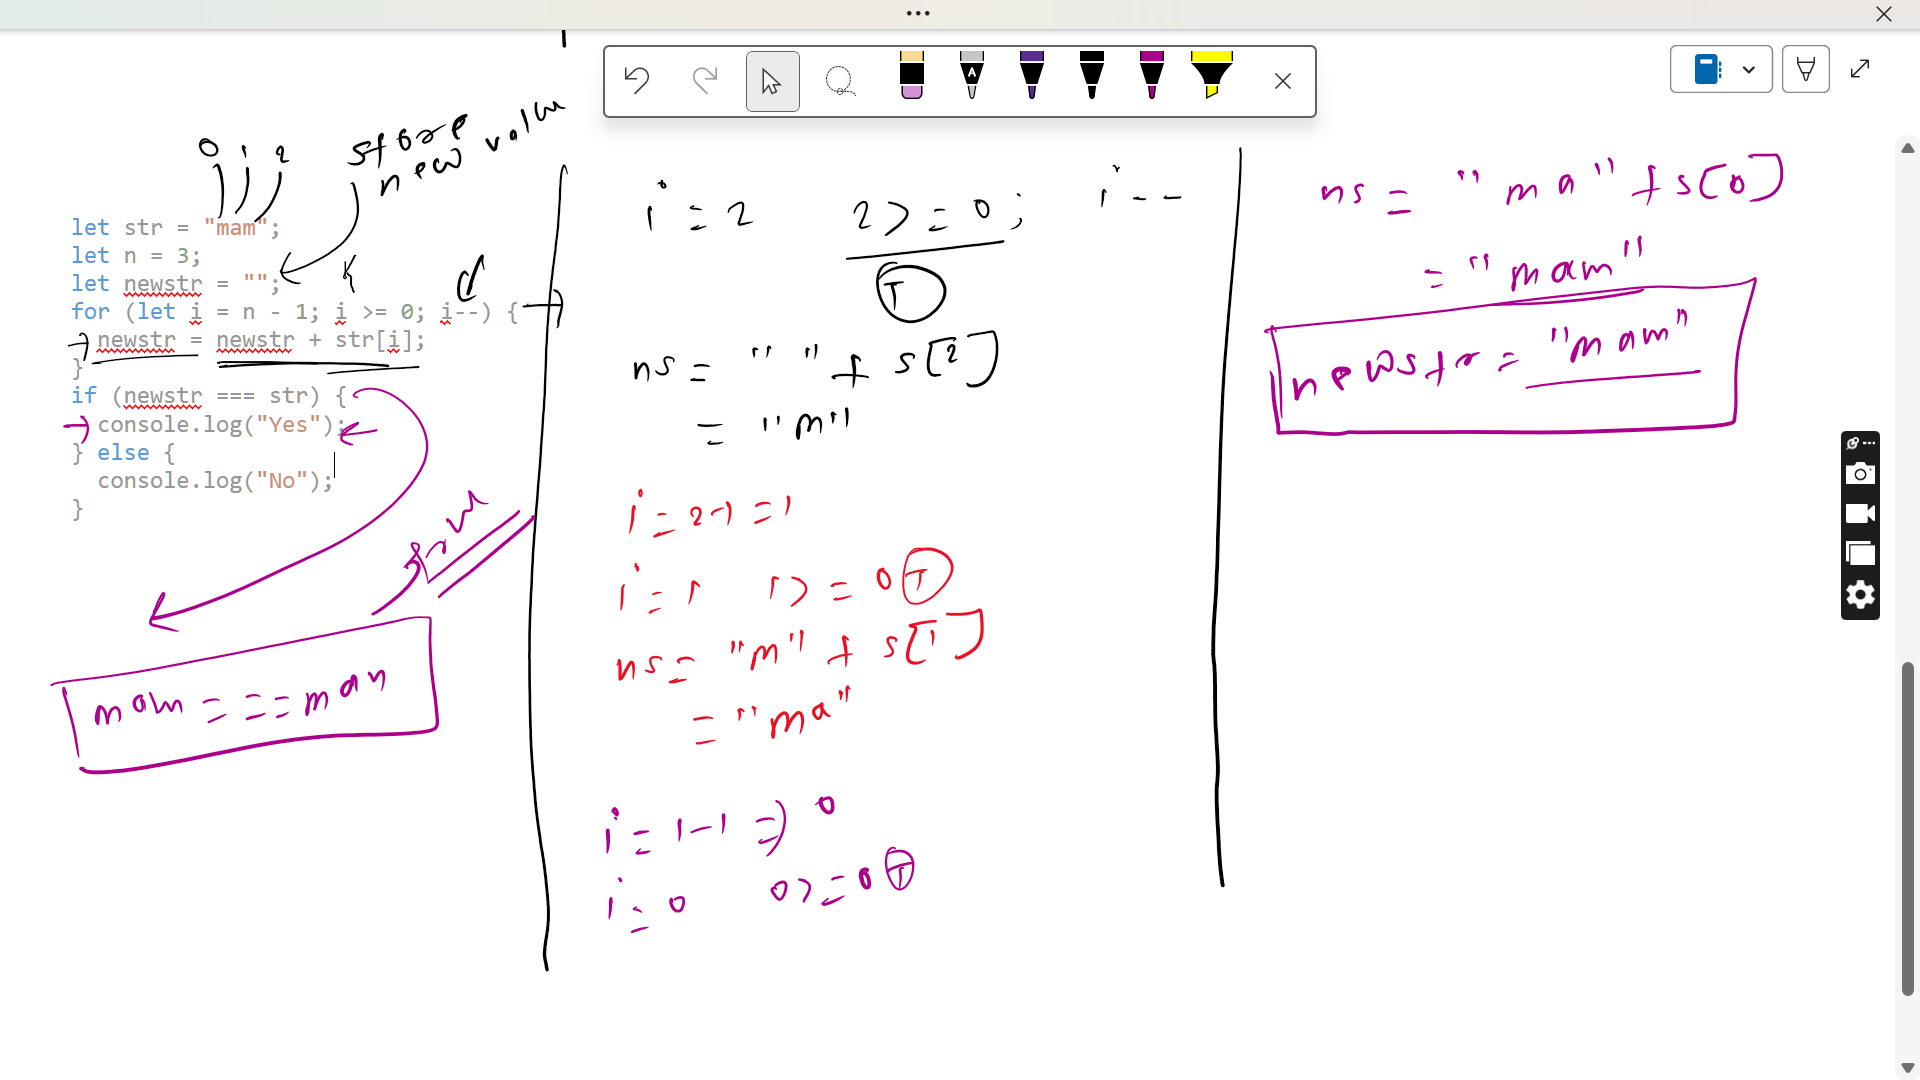 0 1 2
store
new value
let str = "mam";
let n = 3;
let newstr = "";
for (let i = n - 1; i >= 0; i--) {
newstr = newstr + str[i];
}
if (newstr === str) {
console.log("Yes");
} else {
console.log("No");
}
mam === mam
i = 2 2 >= 0; i--
T
ns = " " + s[2]
= "m"
i = 2-1 = 1
i = 1 1 >= 0 T
ns = "m" + s[1]
= "ma"
i = 1-1 => 0
i = 0 0 >= 0 T
ns = "ma" + s[0]
= "mam"
newstr = "mam"